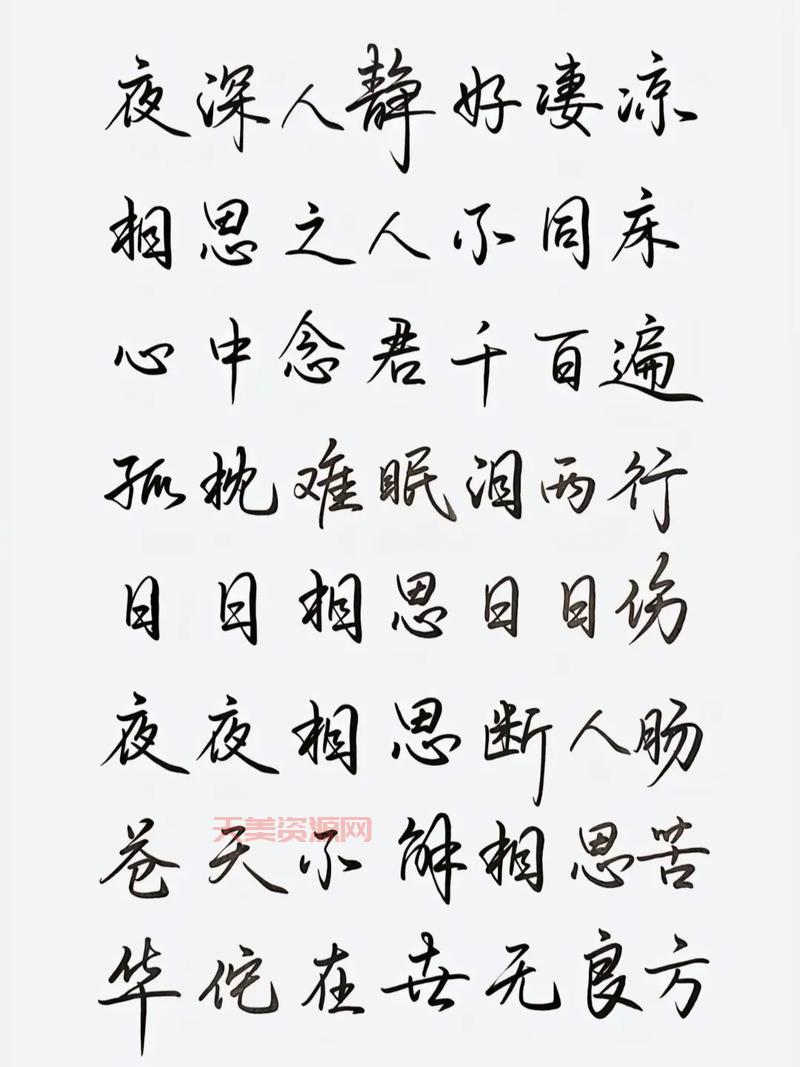 夜深人静好凄凉
相思之人不同床
心中念君千百遍
孤枕难眠泪两行
日日相思日日伤
夜夜相思断人肠
天美资源网
苍天不解相思苦
华佗在世无良方